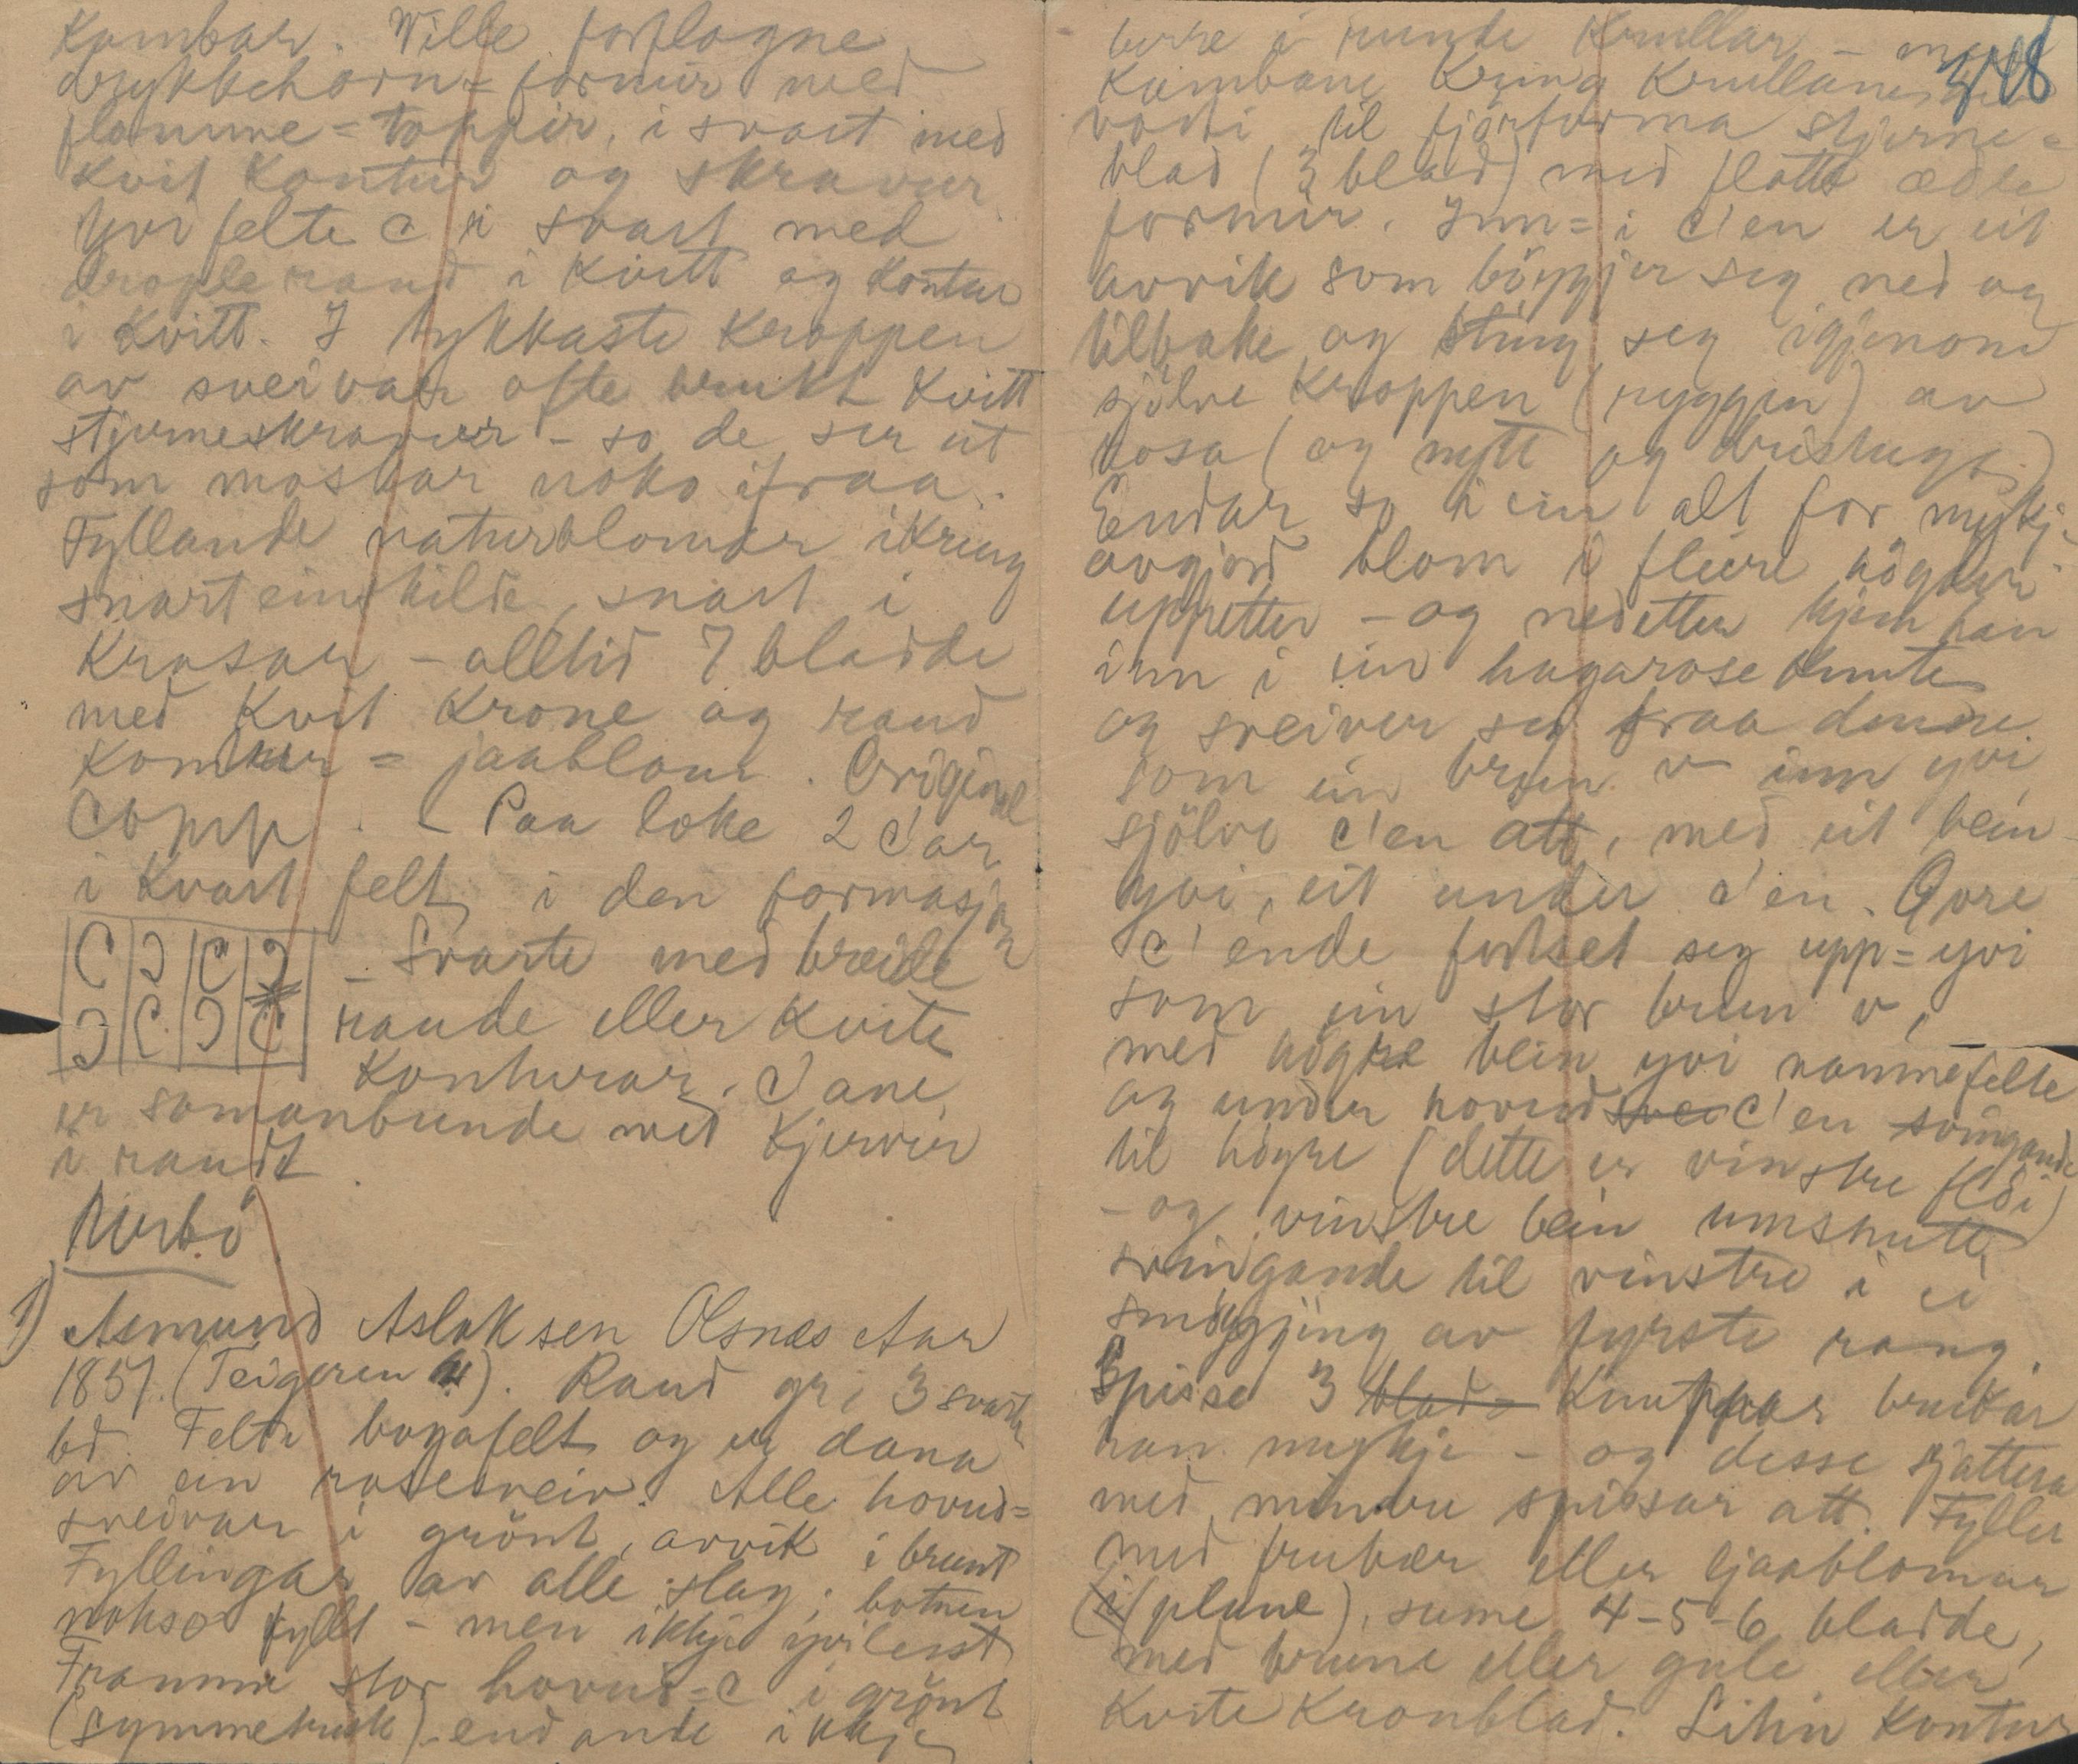 Kambar. Ville forflogne
drykkehorn-formir med
flamme=toppir, i svart med
kvit kontur og skravur
Yvi felte C i svart med
droplerand i kvitt og kontur
i kvitt. I tykkaste kroppen
av sveivar ofte brukt kvitt
stjerneskravur - so de ser ut
som moskar noko ifraa.
Fyllande naturblomar ikring
snart einskilde, snart i
Krasar - alltid 7 bladde
med kvit krone og raud
= jaablom. Original
Comp. - Paa loke 2 C'ar
i kvart felt i den formasjon
C Ɔ C Ɔ
Ɔ C Ɔ C
- Svarte med breide
raude eller kvite
Konturar. C'ane
er samanbunde med kjervir
i raudt.
Nesbö
1) Asmund Aslaksen Olsnes Aar
1857. (Teigeren). Raud gr, 3 svarte
bd. Felte bogafelt og er dana
av ein rosesveiv. Alle hovud=
sveivar i grönt, avvik i brunt
Fyllingar av alle slag; botnen
nokso fyllt - men ikkje yvilesst
Framme stor hovud=C i grönt
(symmetrisk) - endande ikkje
348
berre i runde Krullar -
Kambane kring Krullane
til fjörforma stjerne=
blad (3 blad) med flotte ædle
formir. Inn=i C'en er eit
avvik som böygjer seg ned og
tilbake og sting seg igjenom
sjölve kroppen (ryggen) av
rosa (og nytt og dristugt)
Endar so i ein alt for mykje
avgjord blom i fleire högder
uppetter - og nedetter kjem han
inn i ein hagarose knute
og sveiver seg fraa denne
som ein brun v inn yvi
sjölve C'en att, med eit bein
yvi, eit under C'en. Övre
C'ende fortset seg upp=yvi
som ein stor brun v,
med högre bein yvi rammefelte
og under hovud C'en svingande
til högre (dette er vinstre fløi)
- og vinstre bein umsnutt
svingande til vinstre i ei
smöygjing av fyrste rang.
Spisse 3 blad= Knuppar brukar
han mykje - og desse sjattera
med mindre spissar att. Fyller
med frubær eller ljaablomar
(plane), sume 4-5-6 bladde,
med brune eller gule eller
Kvite Kronblad. Litin Kontur